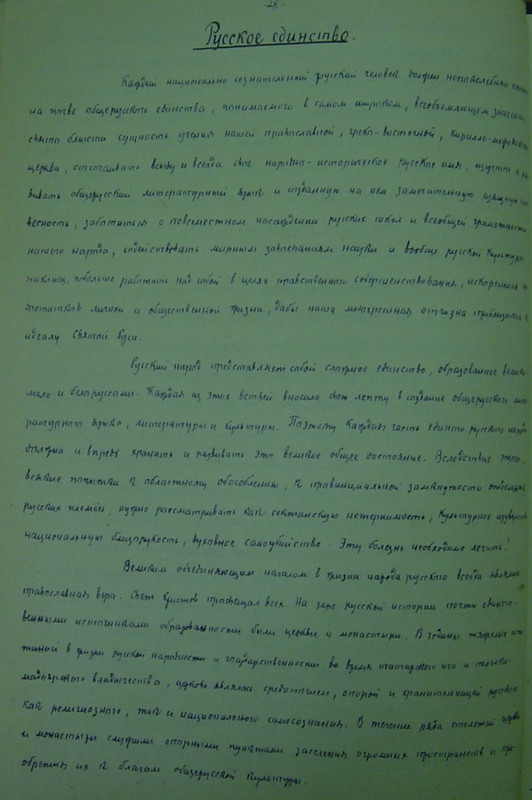 -28-
Русское единство.
Каждый национально сознательный русский человек должен непоколебимо стоять
на почве общерусского единства, понимаемого в самом широком, всеобъемлющем значении,
свято блюсти сущность учения нашей православной, греко-восточной, кирилло-мефодиевской
церкви, отстаивать всюду и всегда свое народно-историческое русское имя, изучать и раз
вивать общерусский литературный язык и созданную на нем замечательную изящную сло
весность, заботиться о повсеместном насаждении русских школ и всеобщей грамотности
нашего народа, содействовать мирным завоеваниям науки и вообще русской культуры
наконец, побольше работать над собой в целях нравственного совершенствования, искоренения не
достатков личной и общественной жизни, дабы наша отчизна приблизилась к
идеалу Святой Руси.
Русский народ представляет собой единство, образованное велико
мало и белоруссами. Каждая из этих ветвей вносила свою лепту в создание общерусского лите
ратурного языка, литературы и культуры. Поэтому каждая часть единого русского народа
должна и впредь хранить и развивать это великое общее достояние. Вследствие этого
всякие попытки к областному обособлению, к провинциальной замкнутости отдельных
русских племен, нужно рассматривать как сектанскую нетерпимость, культурное
национальную близорукость, духовное самоубийство. Эту болезнь необходимо лечить!
Великим объединяющим началом в жизни народа русского всегда являлась
православная вера. Свет Христов просвещал всех. На заре русской истории почти единст
венными источниками образованности были церкви и монастыри. В годины тяжелых
в жизни русской народности и государственности во время татарского ига и
владычества, церковь являлась средоточием, опорой и хранительницей русского
как религиозного, так и национального самосознания. В течение ряда столетий церкви
и монастыри служили опорными пунктами заселения огромных пространств и
их к благам общерусской культуры.